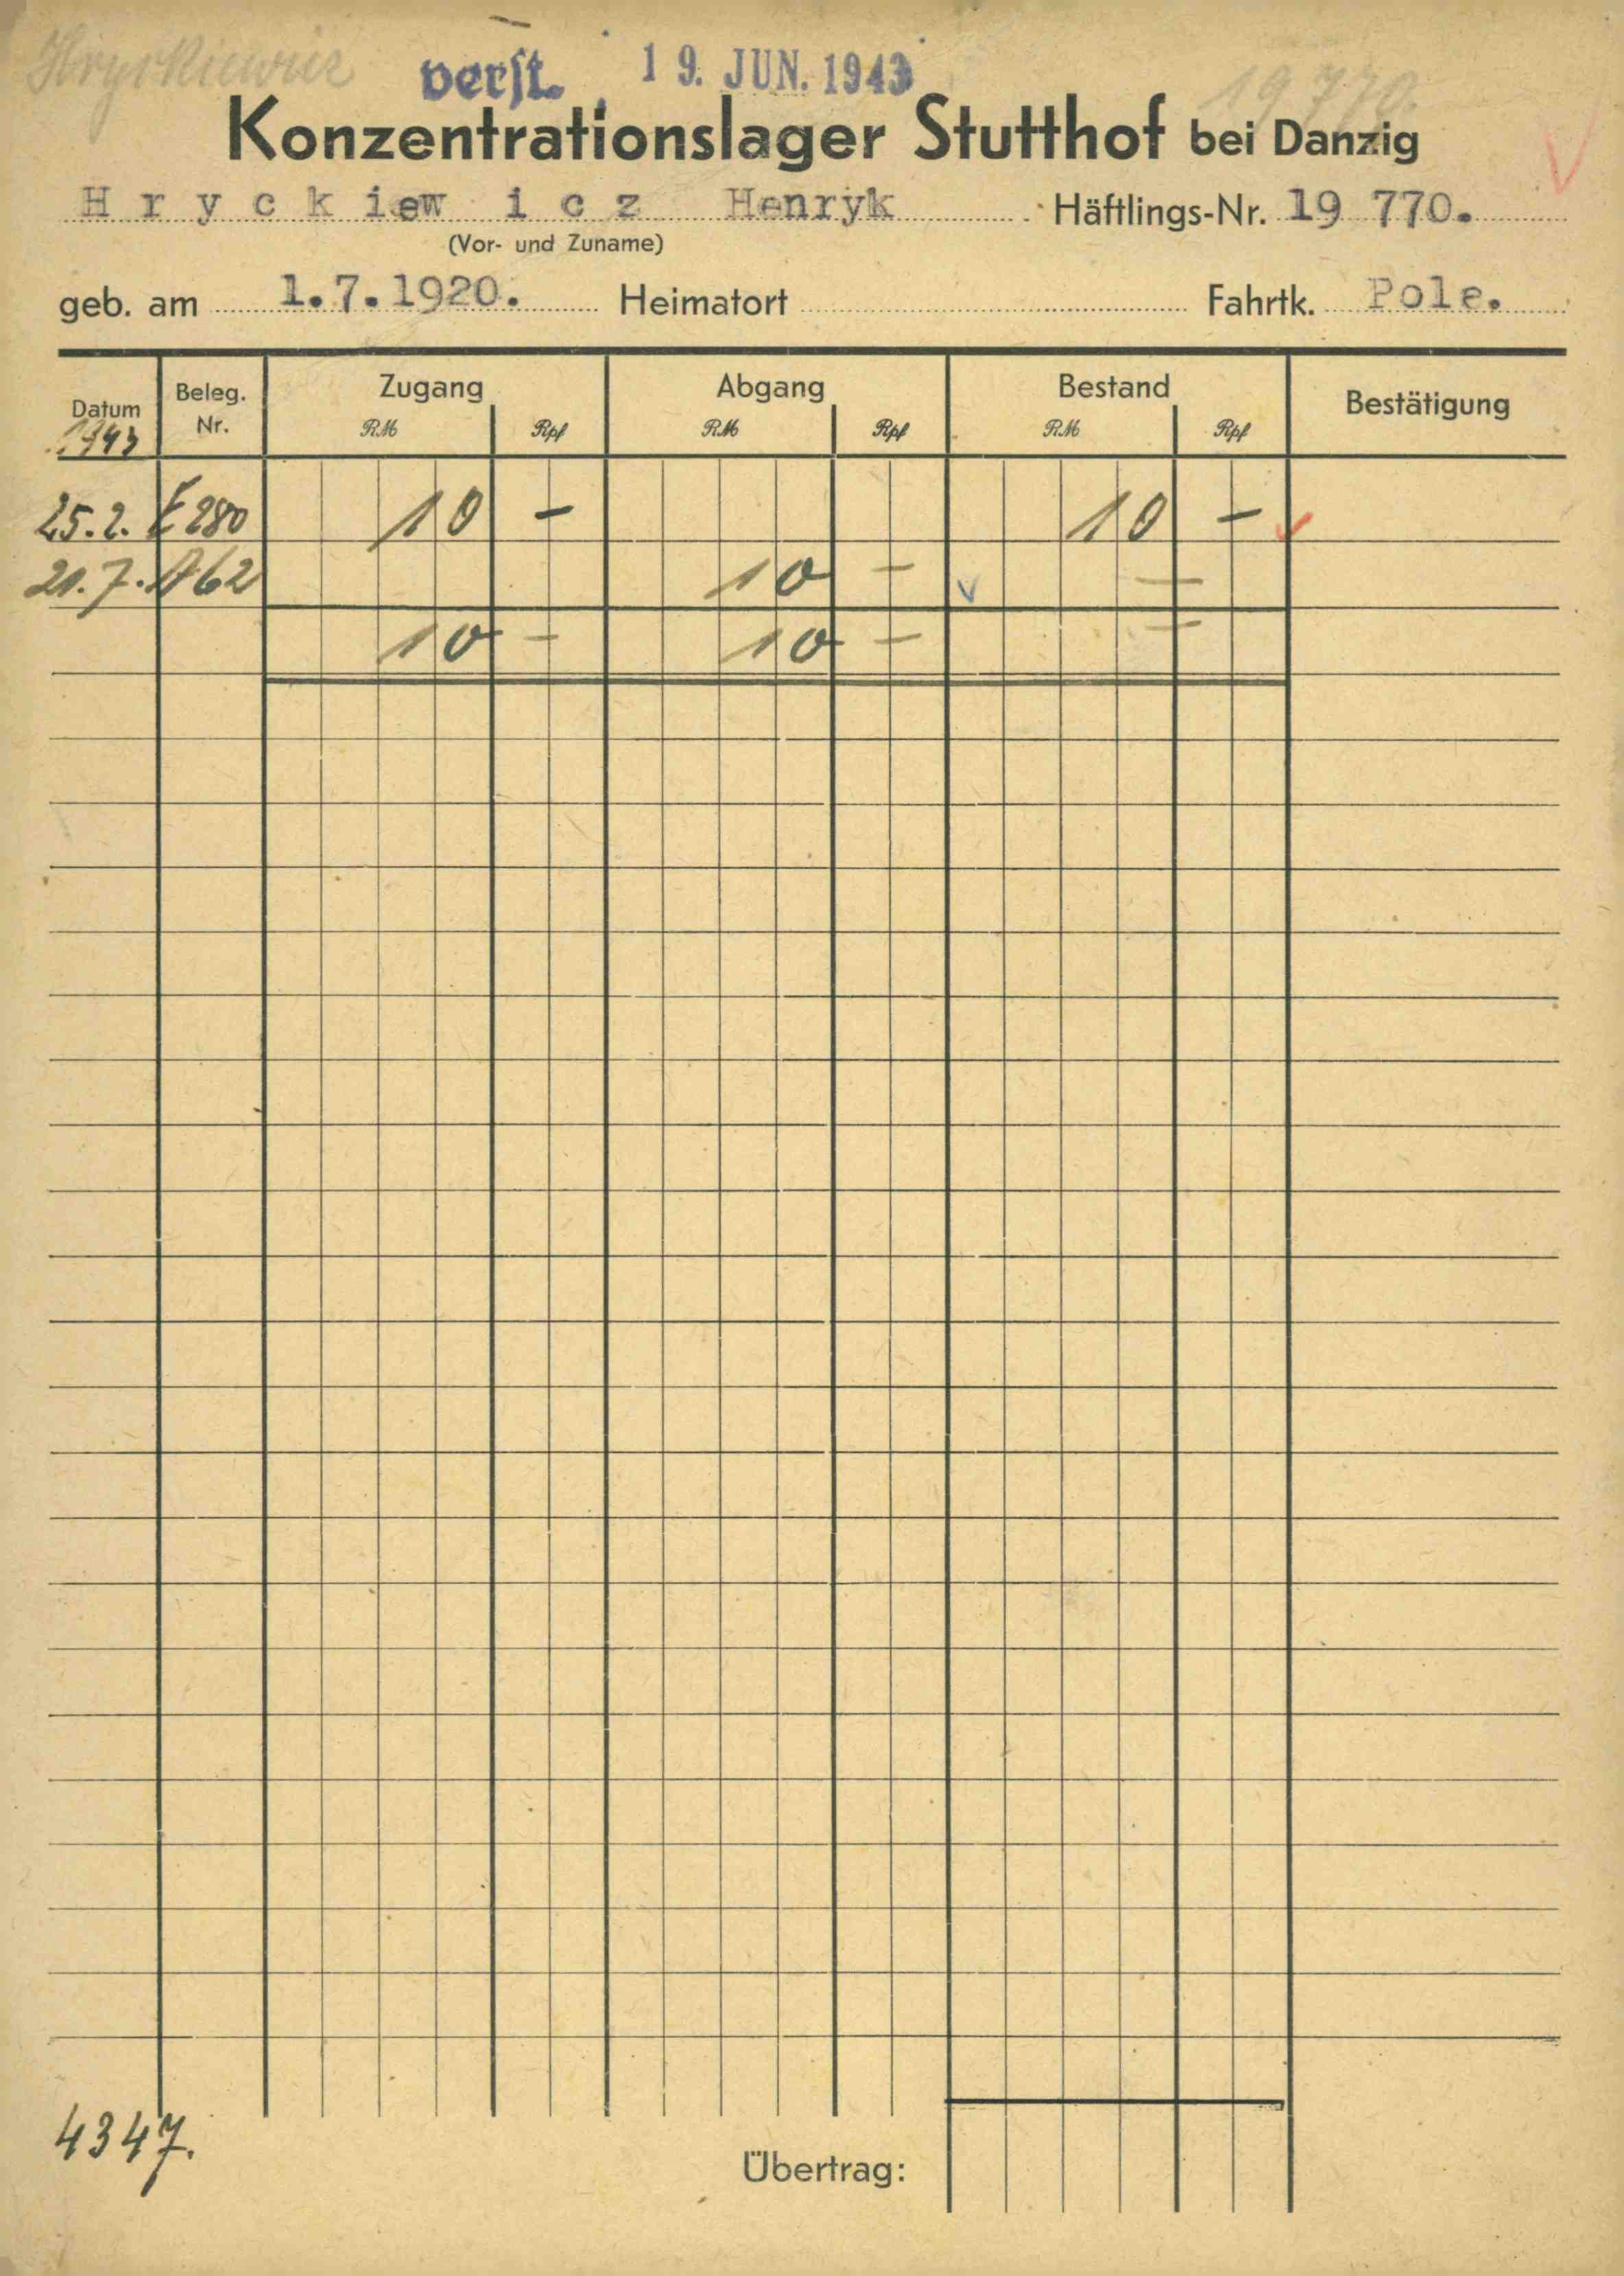 Hryckiewicz verst. 19. JUN. 1943 19770.
Konzentrationslager Stutthof bei Danzig
Hryckiewicz Henryk Häftlings-Nr. 19 770.
(Vor- und Zuname)
geb. am 1.7.1920. Heimatort Fahrtk. Pole.
Datum Beleg. Nr. Zugang Abgang Bestand Bestätigung
1943 RM Rpf RM Rpf RM Rpf
25.2. E280 10 - 10 -
21.7. A62 10 - —
10 - 10 - —
4347.
Übertrag: